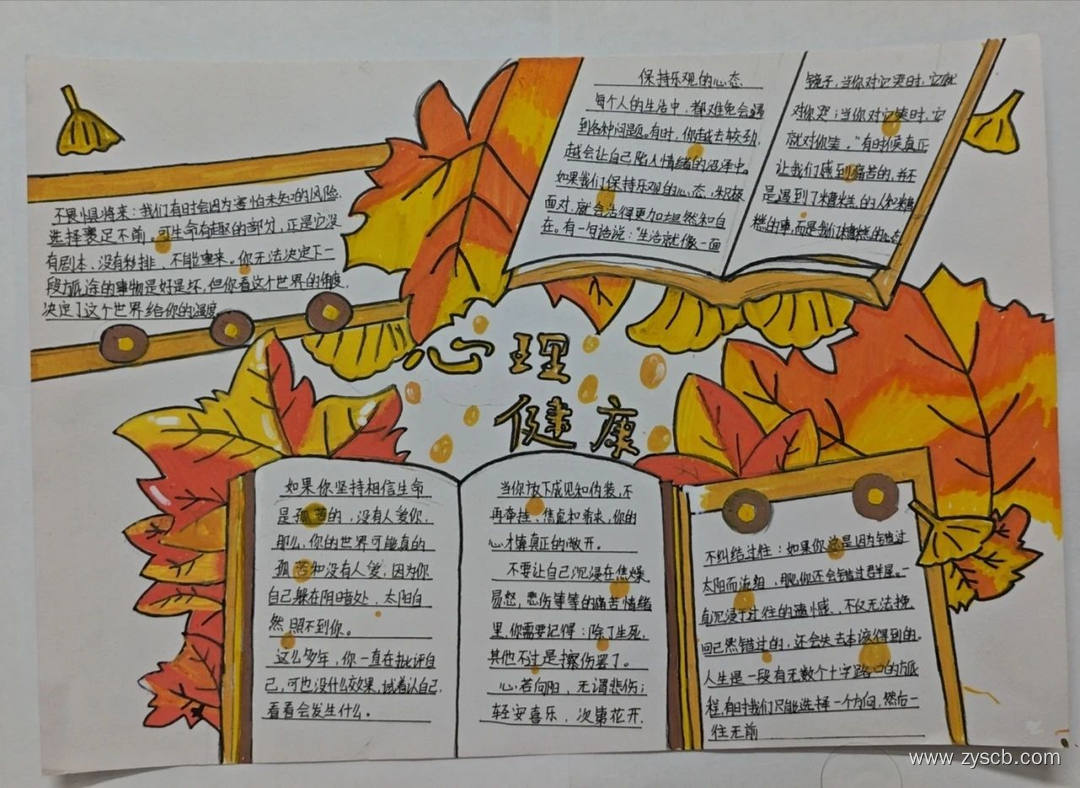 保持乐观的心态
每个人的生活中，都难免会遇
到各种问题。有时，你越去较劲，
越会让自己陷入情绪的沼泽中。
如果我们保持乐观的心态，积极
面对，就会活得更加坦然和自
在。有一句话说："生活就像一面
镜子，当你对它哭时，它就
对你哭；当你对它笑时，它
就对你笑。"有时候真正
让我们感到痛苦的，并不
是遇到了糟糕的人和糟
糕的事，而是我们糟糕的心态
不畏惧将来：我们有时会因为害怕未知的风险，
选择裹足不前。可生命有趣的部分，正是它没
有剧本、没有彩排、不能重来。你无法决定下一
段旅途的事物是好是坏，但你看这个世界的角度，
决定了这个世界给你的温度
心理
健康
如果你坚持相信生命
是孤苦的，没有人爱你，
那么，你的世界可能真的
孤苦和没有人爱，因为你
自己躲在阴暗处，太阳自
然照不到你。
这么多年，你一直在批评自
己，可也没什么效果，试着认自己，
看看会发生什么。
当你放下成见和伪装，不
再牵挂、焦虑和看来，你的
心才算真正的敞开。
不要让自己沉浸在焦燥、
易怒，悲伤等等的痛苦情绪
里，你需要记得：除了生死，
其他不过是擦伤罢了。
心若向阳，无谓悲伤；
轻安喜乐，次第花开。
不纠结过往：如果你总是因为错过
太阳而流泪，那你还会错过群星。一
直沉浸于过往的遗憾，不仅无法挽
回已然错过的，还会失去本该得到的。
人生是一段有无数个十字路口的旅
程，有时我们只能选择一个方向，然后一
往无前
www.zyscb.com